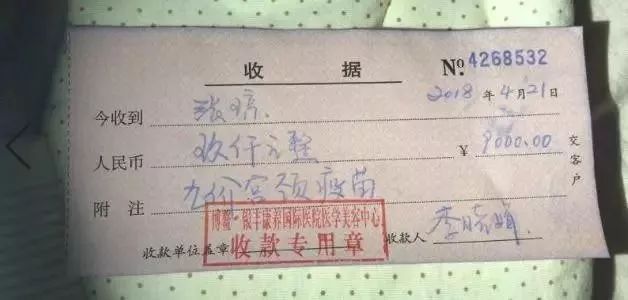 收 据 №4268532
2018 年 4 月 21 日
今收到 张
人民币 玖仟元整 ¥ 9000.00
附 注 九价宫颈疫苗
交客户
博鳌·银丰康养国际医院医学美容中心
收款专用章
收款单位盖章 收款人 李